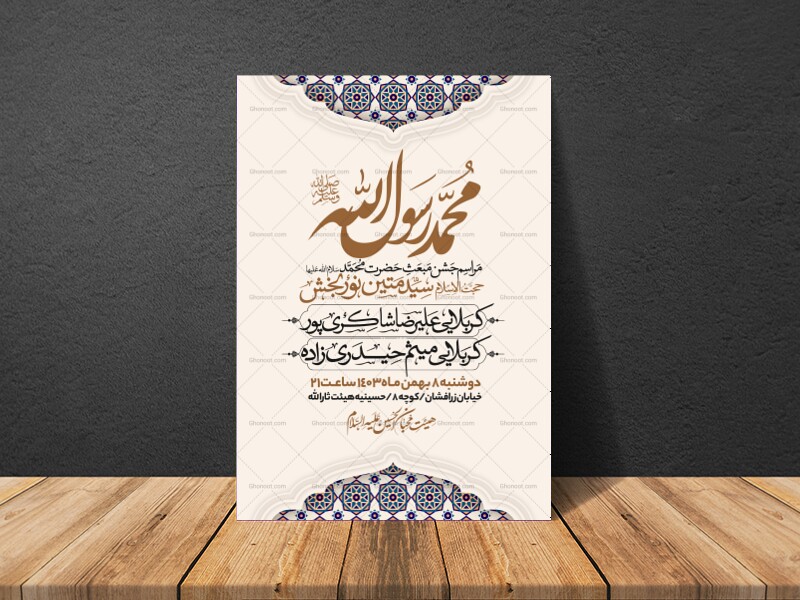 محمد رسول الله
صلی الله علیه وسلم
مراسم جشن مبعث حضرت محمد سلام الله علیها
حجت الاسلام سید متین نوربخش
کربلایی علیرضا شاکری پور
کربلایی میثم حیدری زاده
دوشنبه ۸ بهمن ماه ۱۴۰۳ ساعت ۲۱
خیابان زرافشان / کوچه ۸ / حسینیه هیئت ثارالله
هیئت محبان الحسین علیه السلام
Ghonoot.com